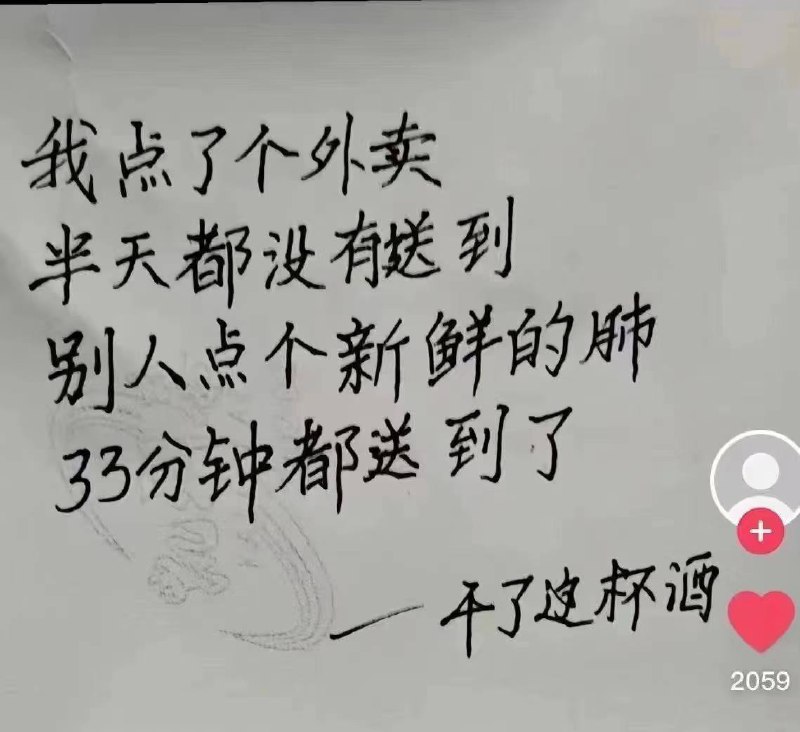 我点了个外卖
半天都没有送到
别人点个新鲜的肺
33分钟都送到了
—干了这杯酒
2059